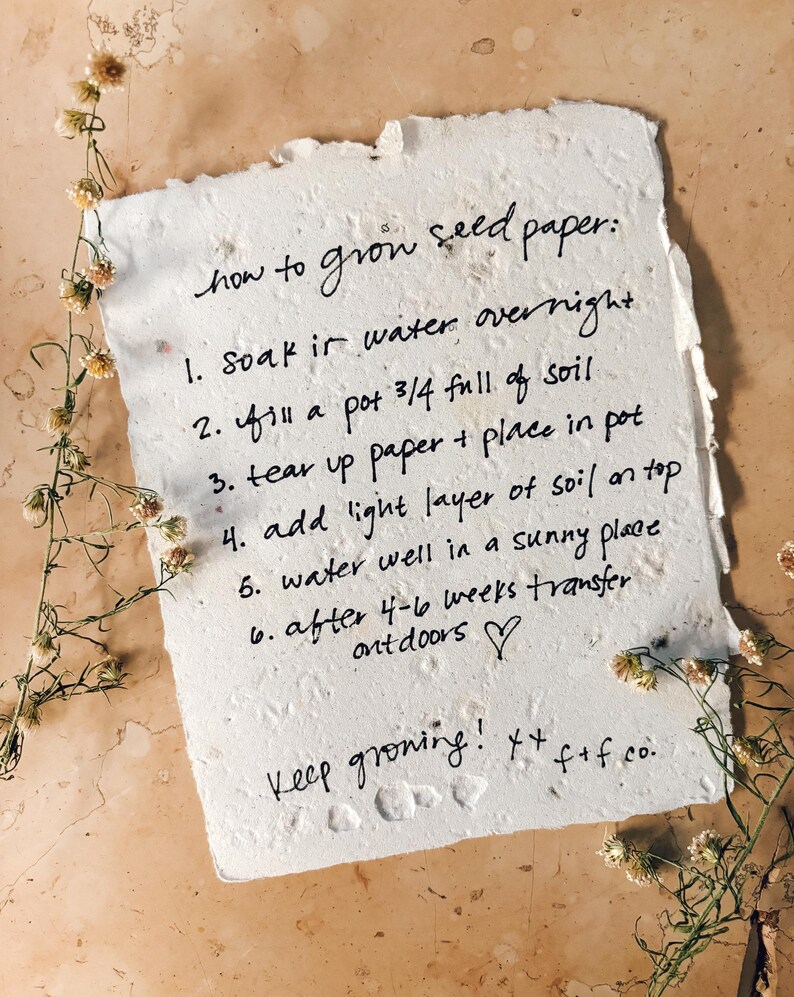 how to grow seed paper:
1. soak in water overnight
2. fill a pot 3/4 full of soil
3. tear up paper + place in pot
4. add light layer of soil on top
5. water well in a sunny place
6. after 4-6 weeks transfer
outdoors ♡
Keep growing! xx f+f co.